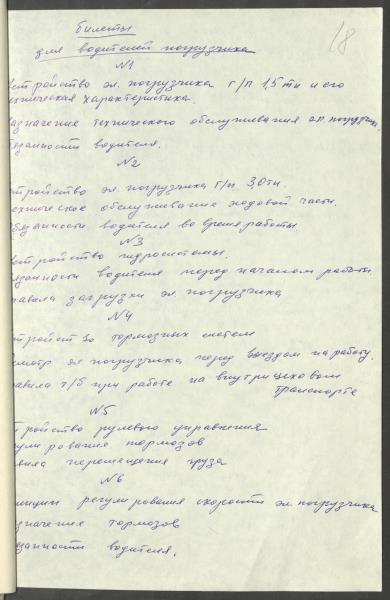 билеты
18
для водителей погрузчика
N1
стройство эл. погрузчика г/п 1,5 тн и его
ехническая характеристика
азначение технического обслуживания эл. погрузчик
бязанности водителя.
N2
стройство эл. погрузчика г/п 3,0 тн.
ехническое обслуживание ходовой части.
бязанности водителя во время работы
N3
стройство гидросистемы.
язанности водителя перед началом работы
равила загрузки эл. погрузчика
N4
тройство тормозных систем
смотр эл. погрузчика перед выездом на работу.
авила т/б при работе на внутрицеховом
транспорте
N5
тройство рулевого управления
гулирование тормозов
вила перемещения груза
N6
нципы регулирования скорости эл. погрузчика
значение тормозов
занности водителя.